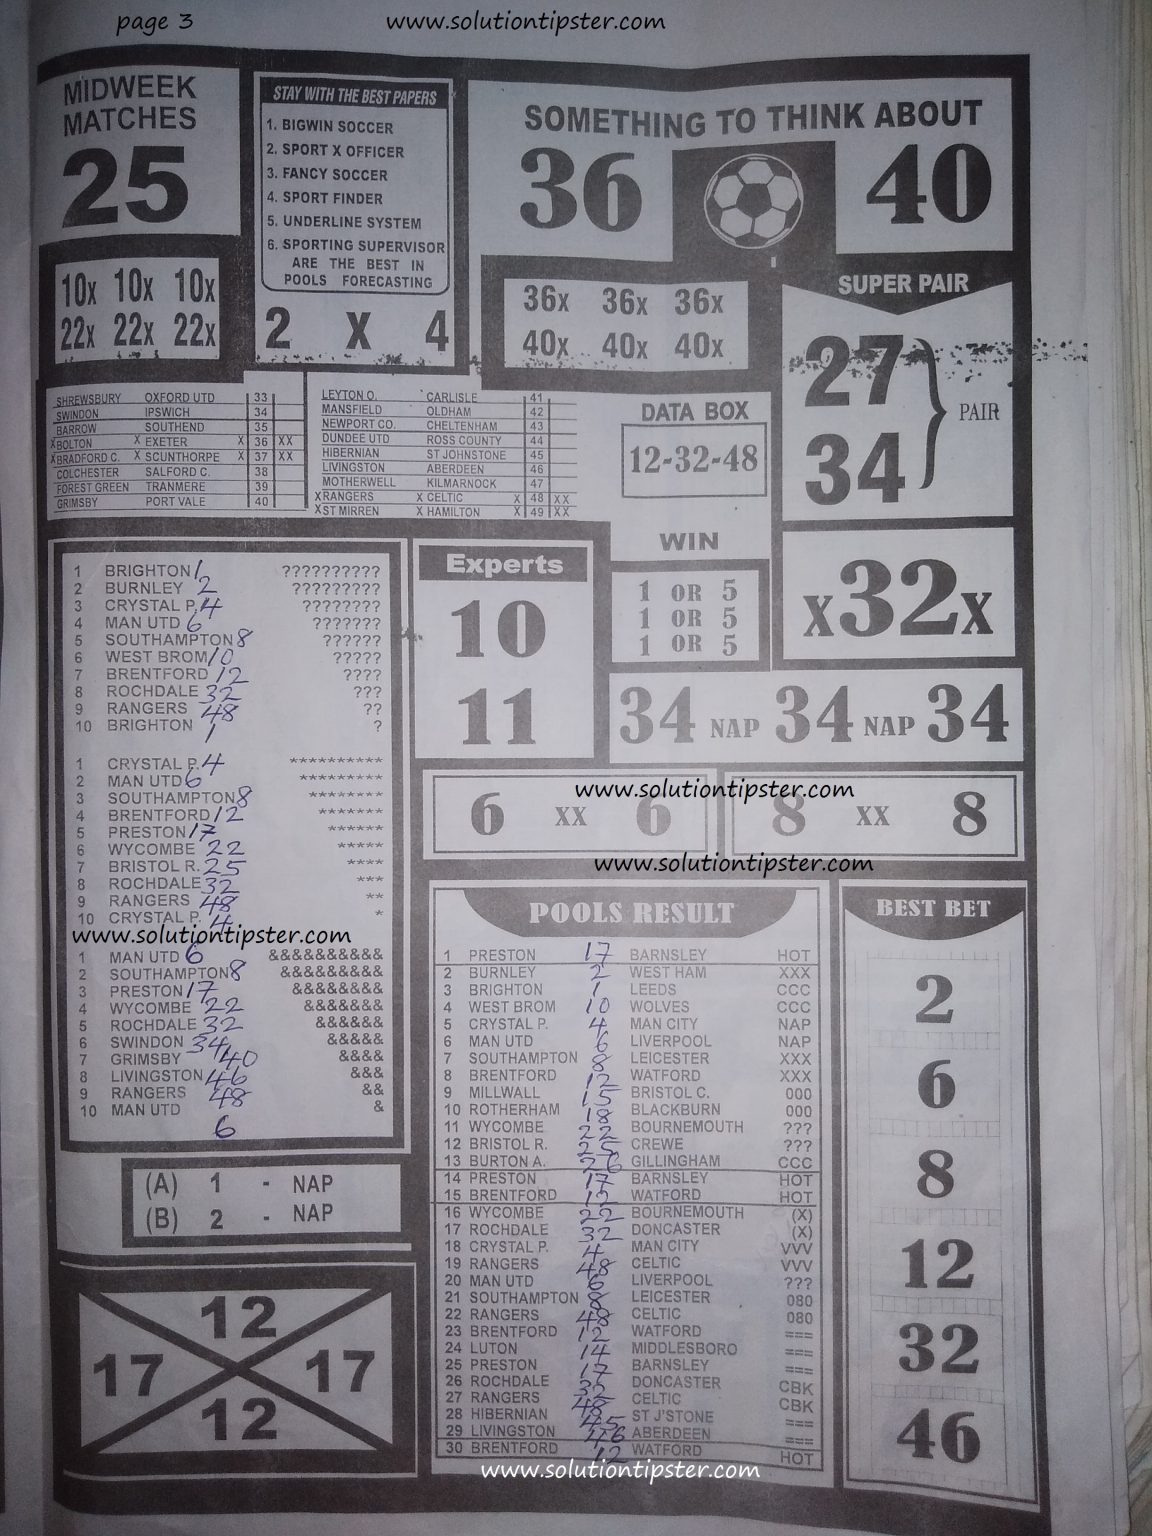 page 3 www.solutiontipster.com
MIDWEEK
MATCHES
25
10x 10x 10x
22x 22x 22x
STAY WITH THE BEST PAPERS
1. BIGWIN SOCCER
2. SPORT X OFFICER
3. FANCY SOCCER
4. SPORT FINDER
5. UNDERLINE SYSTEM
6. SPORTING SUPERVISOR
ARE THE BEST IN
POOLS FORECASTING
2 X 4
SOMETHING TO THINK ABOUT
36 40
36x 36x 36x
40x 40x 40x
SUPER PAIR
27
34
PAIR
SHREWSBURY OXFORD UTD 33
SWINDON IPSWICH 34
BARROW SOUTHEND 35
X BOLTON X EXETER X 36 XX
X BRADFORD C. X SCUNTHORPE X 37 XX
COLCHESTER SALFORD C. 38
FOREST GREEN TRANMERE 39
GRIMSBY PORT VALE 40
LEYTON O. CARLISLE 41
MANSFIELD OLDHAM 42
NEWPORT CO. CHELTENHAM 43
DUNDEE UTD ROSS COUNTY 44
HIBERNIAN ST JOHNSTONE 45
LIVINGSTON ABERDEEN 46
MOTHERWELL KILMARNOCK 47
X RANGERS X CELTIC X 48 XX
X ST MIRREN X HAMILTON X 49 XX
DATA BOX
12-32-48
WIN
1 OR 5
1 OR 5
1 OR 5
X32X
1 BRIGHTON 1 ??????????
2 BURNLEY 2 ?????????
3 CRYSTAL P. 4 ????????
4 MAN UTD 6 ???????
5 SOUTHAMPTON 8 ??????
6 WEST BROM 10 ?????
7 BRENTFORD 12 ????
8 ROCHDALE 32 ???
9 RANGERS 48 ??
10 BRIGHTON 1 ?
1 CRYSTAL P. 4 **********
2 MAN UTD 6 *********
3 SOUTHAMPTON 8 ********
4 BRENTFORD 12 *******
5 PRESTON 17 ******
6 WYCOMBE 22 *****
7 BRISTOL R. 25 ****
8 ROCHDALE 32 ***
9 RANGERS 48 **
10 CRYSTAL P. 4 *
www.solutiontipster.com
1 MAN UTD 6 &&&&&&&&&&
2 SOUTHAMPTON 8 &&&&&&&&&
3 PRESTON 17 &&&&&&&&
4 WYCOMBE 22 &&&&&&&
5 ROCHDALE 32 &&&&&&
6 SWINDON 34 &&&&&
7 GRIMSBY 40 &&&&
8 LIVINGSTON 46 &&&
9 RANGERS 48 &&
10 MAN UTD 6 &
Experts
10
11
34 NAP 34 NAP 34
www.solutiontipster.com
6 XX 6
8 XX 8
www.solutiontipster.com
(A) 1 - NAP
(B) 2 - NAP
12
17 17
12
POOLS RESULT
1 PRESTON 17 BARNSLEY HOT
2 BURNLEY 2 WEST HAM XXX
3 BRIGHTON 1 LEEDS CCC
4 WEST BROM 10 WOLVES CCC
5 CRYSTAL P. 4 MAN CITY NAP
6 MAN UTD 6 LIVERPOOL NAP
7 SOUTHAMPTON 8 LEICESTER XXX
8 BRENTFORD 12 WATFORD XXX
9 MILLWALL 15 BRISTOL C. 000
10 ROTHERHAM 18 BLACKBURN 000
11 WYCOMBE 22 BOURNEMOUTH ???
12 BRISTOL R. 25 CREWE ???
13 BURTON A. 26 GILLINGHAM CCC
14 PRESTON 17 BARNSLEY HOT
15 BRENTFORD 12 WATFORD HOT
16 WYCOMBE 22 BOURNEMOUTH (X)
17 ROCHDALE 32 DONCASTER (X)
18 CRYSTAL P. 4 MAN CITY VVV
19 RANGERS 48 CELTIC VVV
20 MAN UTD 6 LIVERPOOL ???
21 SOUTHAMPTON 8 LEICESTER 080
22 RANGERS 48 CELTIC 080
23 BRENTFORD 12 WATFORD ===
24 LUTON 14 MIDDLESBORO ===
25 PRESTON 17 BARNSLEY ===
26 ROCHDALE 32 DONCASTER CBK
27 RANGERS 48 CELTIC CBK
28 HIBERNIAN 45 ST J'STONE ===
29 LIVINGSTON 46 ABERDEEN ===
30 BRENTFORD 12 WATFORD HOT
www.solutiontipster.com
BEST BET
2
6
8
12
32
46